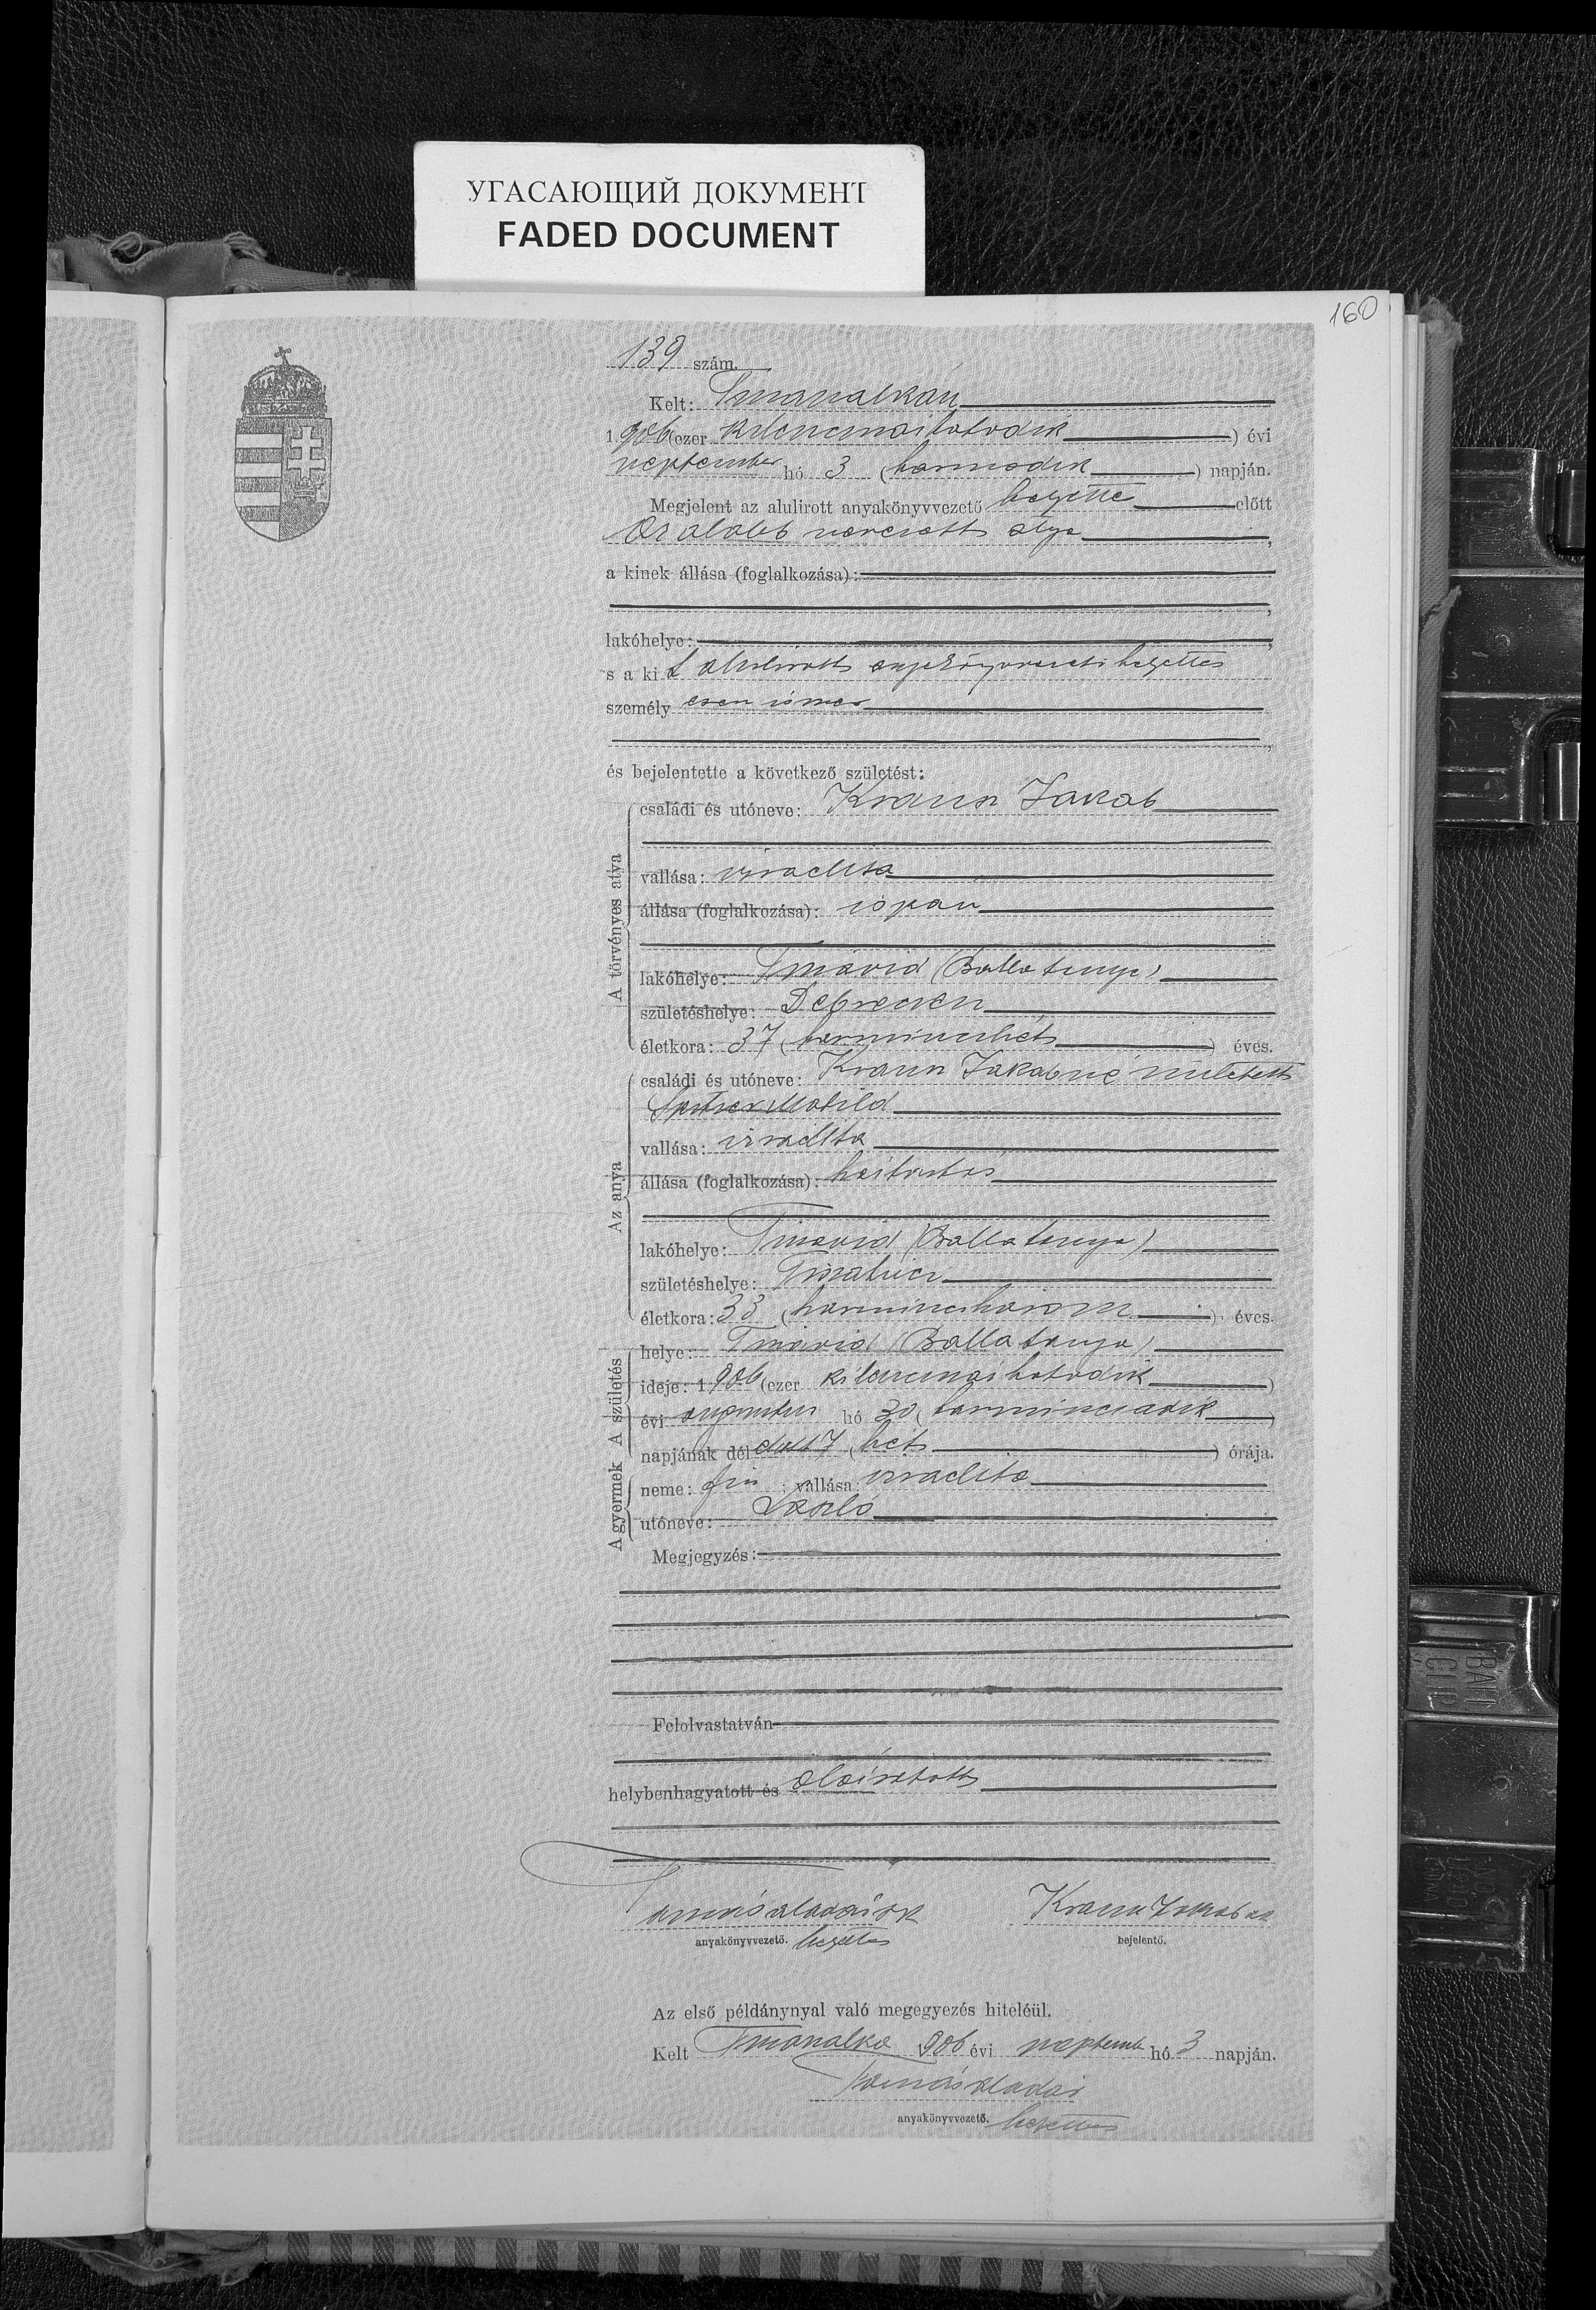 УГАСАЮЩИЙ ДОКУМЕНТ
FADED DOCUMENT
160
139 szám.
Kelt:
1906 (ezer kilencszázhatodik) évi
szeptember hó 3 (harmadik) napján.
Megjelent az alulirott anyakönyvvezető helyettes előtt
az alább nevezett atya,
a kinek állása (foglalkozása):
lakóhelye:
s a kit alulirott anyakönyvvezető helyettes
személy esen ismer
és bejelentette a következő születést:
A törvényes atya
családi és utóneve: Kraun Jakab
vallása: izraelita
állása (foglalkozása): ispán
lakóhelye: Tiszavid (Balla tanya)
születéshelye: Debreczen
életkora: 37 (harminczhét) éves.
Az anya
családi és utóneve: Kraun Jakabné született
Spitzer Matild
vallása: izraelita
állása (foglalkozása): háztartás
lakóhelye: Tiszavid (Balla tanya)
születéshelye:
életkora: 33 (harminczhárom) éves.
A születés
helye: Tiszavid (Balla tanya)
ideje: 1906 (ezer kilenczszázhatodik)
évi augusztus hó 30 (harminczadik)
napjának dél előtt 7 (hét) órája.
A gyermek
neme: fiú; vallása izraelita
utóneve: László
Megjegyzés:
Felolvastatván
helybenhagyatott és aláiratott
Tamás Aladár sk Kraun Jakab sk
anyakönyvvezető. helyettes bejelentő.
Az első példánynyal való megegyezés hiteléül.
Kelt 906 évi szeptemb hó 3 napján.
Tamás Aladár
anyakönyvvezető. helyettes
BAIN
CLIP